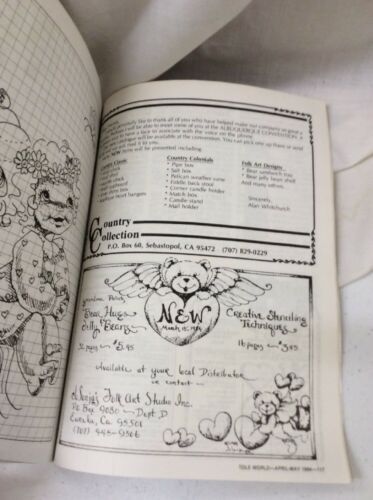 like to thank all of you who have helped make our company so great a
will be able to meet some of you at the ALBUQUERQUE CONVENTION, a
to have a face to associate with the voice on the phone.
will be You can pick one up there or send
it to you.
NEW items will be presented including:
Country Classic
clock
cupboard
heart hangers
Country Colonials
* Pipe box
* Salt box
* Pelican weather vane
* Fiddle back stool
* Corner candle holder
* Match box
* Candle stand
* Mail holder
Folk Art Designs
* Bear sandwich tray
* Bear jelly bean shelf
And many others.
Sincerely,
Alan Whitchurch
Country
Collection
P.O. Box 60, Sebastopol, CA 95472 (707) 829-0229
NEW
March 15, 1984
"Bear Hugs
Jelly Beans"
32 pages ~ $5.95
Creative Stenciling
Techniques
16 pages ~ $3.95
Available at your local Distributor
or contact —
Folk Art Studio Inc.
PO Box 9030 — Dept D
Eureka, Ca. 95501
(707) 445-9306
TOLE WORLD—APRIL/MAY 1984—117